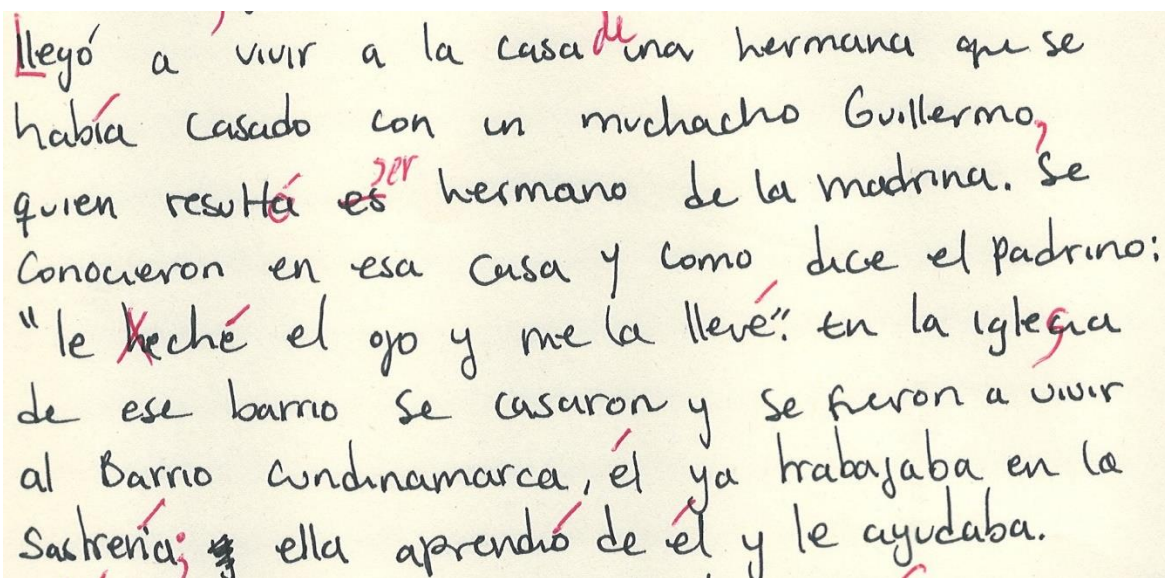 llegó a vivir a la casa de una hermana que se
había casado con un muchacho Guillermo,
quien resultá es ser hermano de la madrina. Se
conocieron en esa casa y como dice el padrino:
"le heché el ojo y me la llevé". En la iglesia
de ese barrio se casaron y se fueron a vivir
al Barrio Cundinamarca, él ya trabajaba en la
sastrería; y ella aprendió de él y le ayudaba.